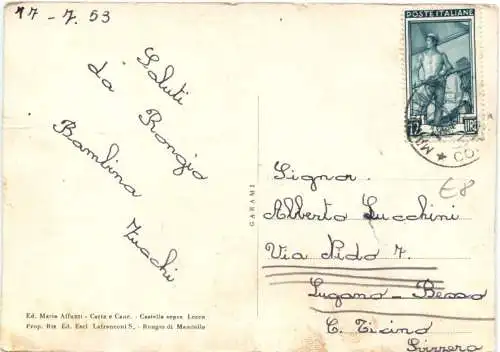 17-7.53
Saluti
da Rongio
Bambina
Zucchi
POSTE ITALIANE
12
LIRE
GARAMI
Signor
Alberto Lucchini
Via Nido 7.
Lugano - Besso
C. Ticino
Svizzera
€8
Ed. Maria Alfanti - Carta e Canc. - Castello sopra Lecco
Prop. Ris Ed. Escl Lafranconi S., - Rongio di Mandello